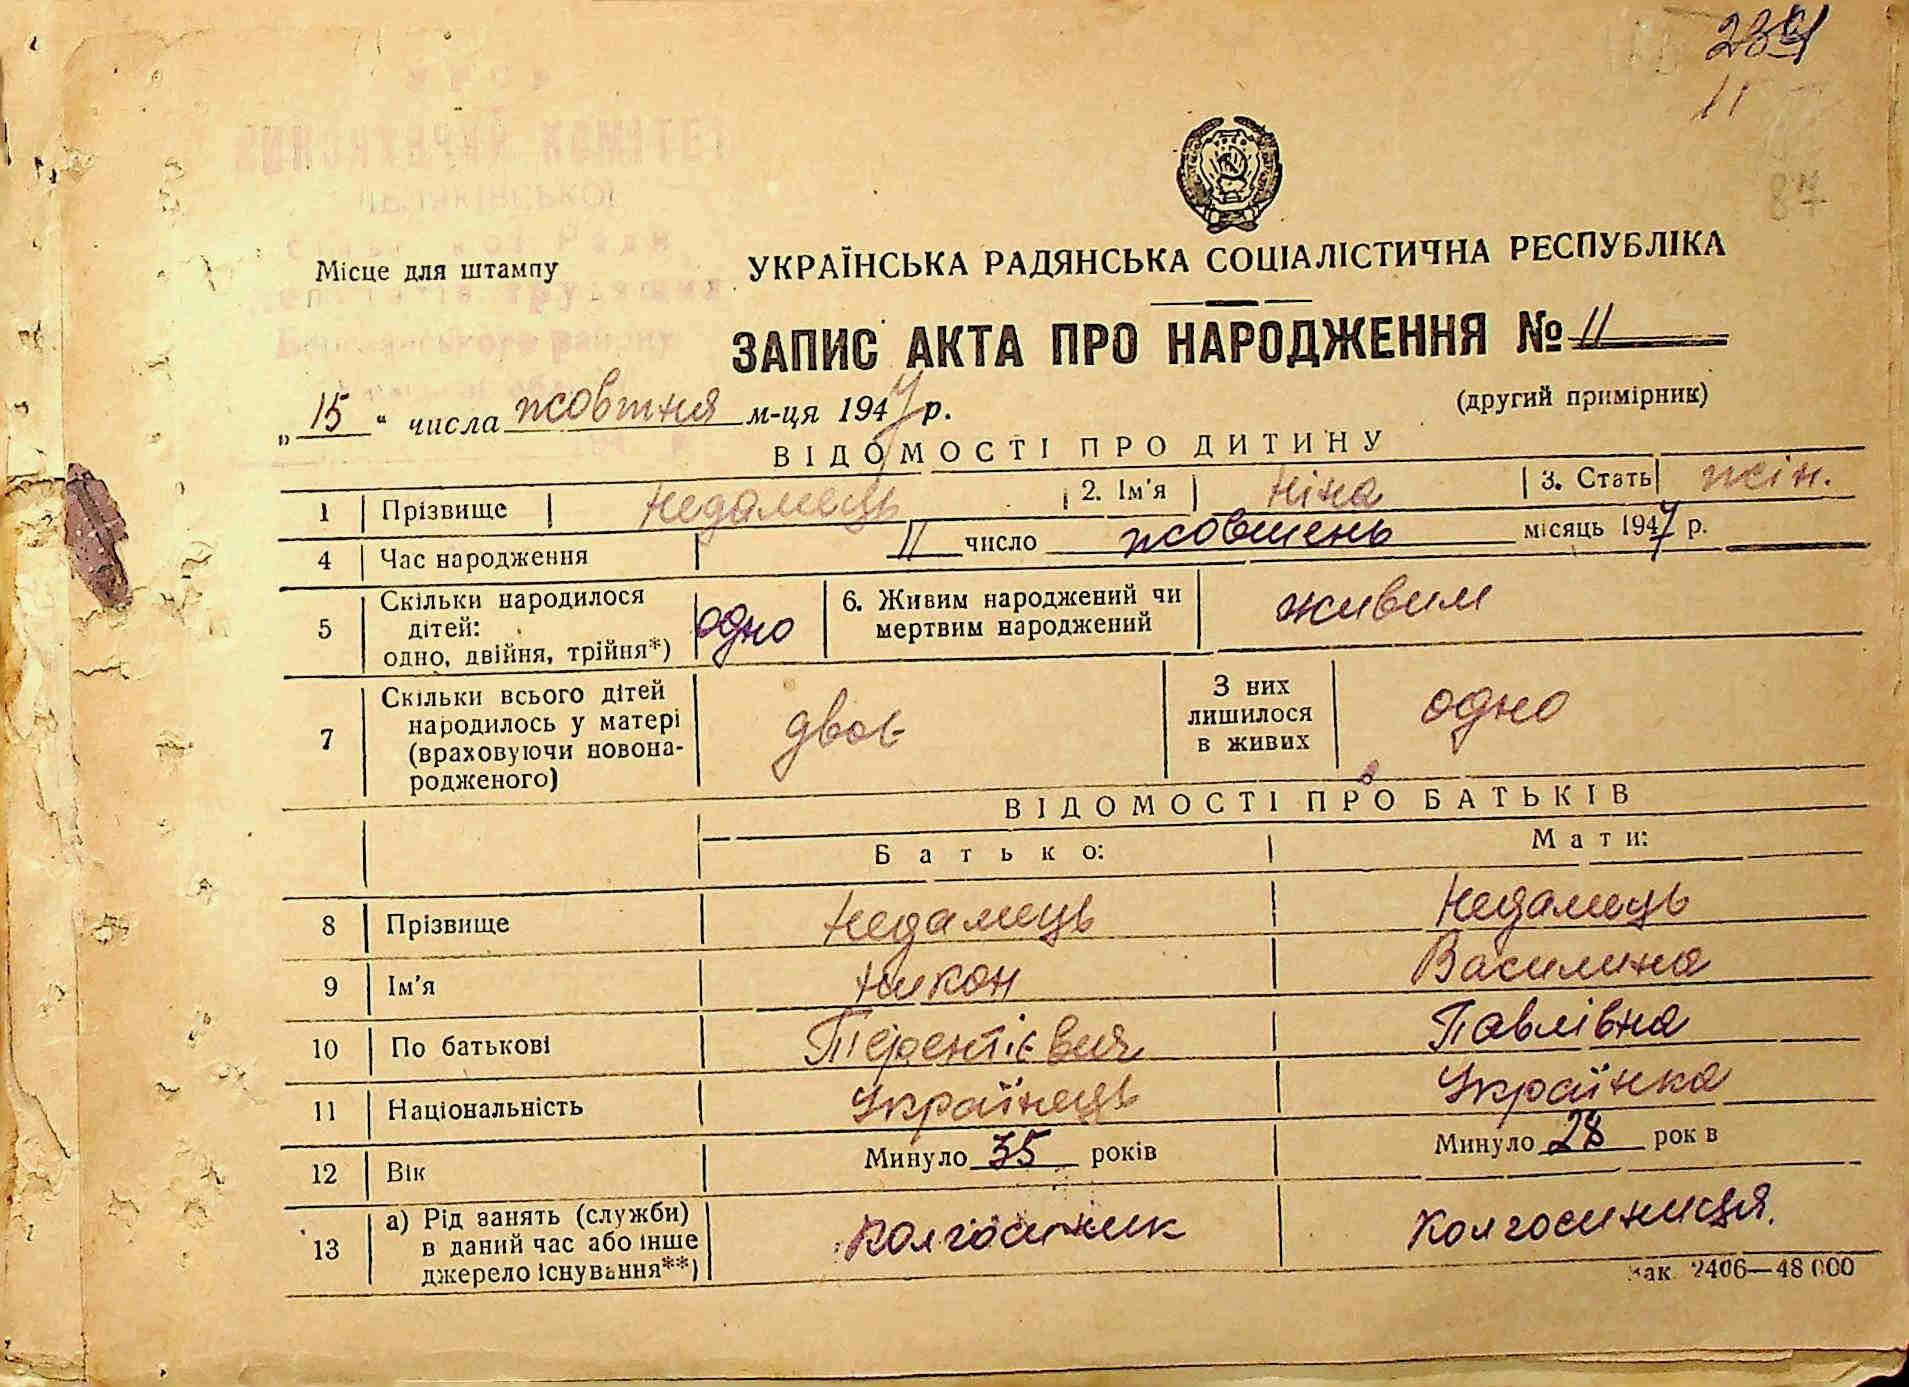 239
11
87
УРСР
ВИКОНАВЧИЙ КОМІТЕТ
Місце для штампу
УКРАЇНСЬКА РАДЯНСЬКА СОЦІАЛІСТИЧНА РЕСПУБЛІКА
ЗАПИС АКТА ПРО НАРОДЖЕННЯ № 11
(другий примірник)
„15“ числа жовтня м-ця 1947 р.
ВІДОМОСТІ ПРО ДИТИНУ
1 Прізвище Недамець 2. Ім'я Ніна 3. Стать жін.
4 Час народження 11 число жовтень місяць 1947 р.
5 Скільки народилося дітей: одно, двійня, трійня*) одно 6. Живим народжений чи мертвим народжений живим
7 Скільки всього дітей народилось у матері (враховуючи новонародженого) двоє З них лишилося в живих одно
ВІДОМОСТІ ПРО БАТЬКІВ
Батько: Мати:
8 Прізвище Недамець Недамець
9 Ім'я Никон Василина
10 По батькові Терентієвич Павлівна
11 Національність Українець Українка
12 Вік Минуло 35 років Минуло 28 рок в
13 а) Рід занять (служби) в даний час або інше джерело існування**) колгоспник колгоспниця.
Зак. 2406—48 000